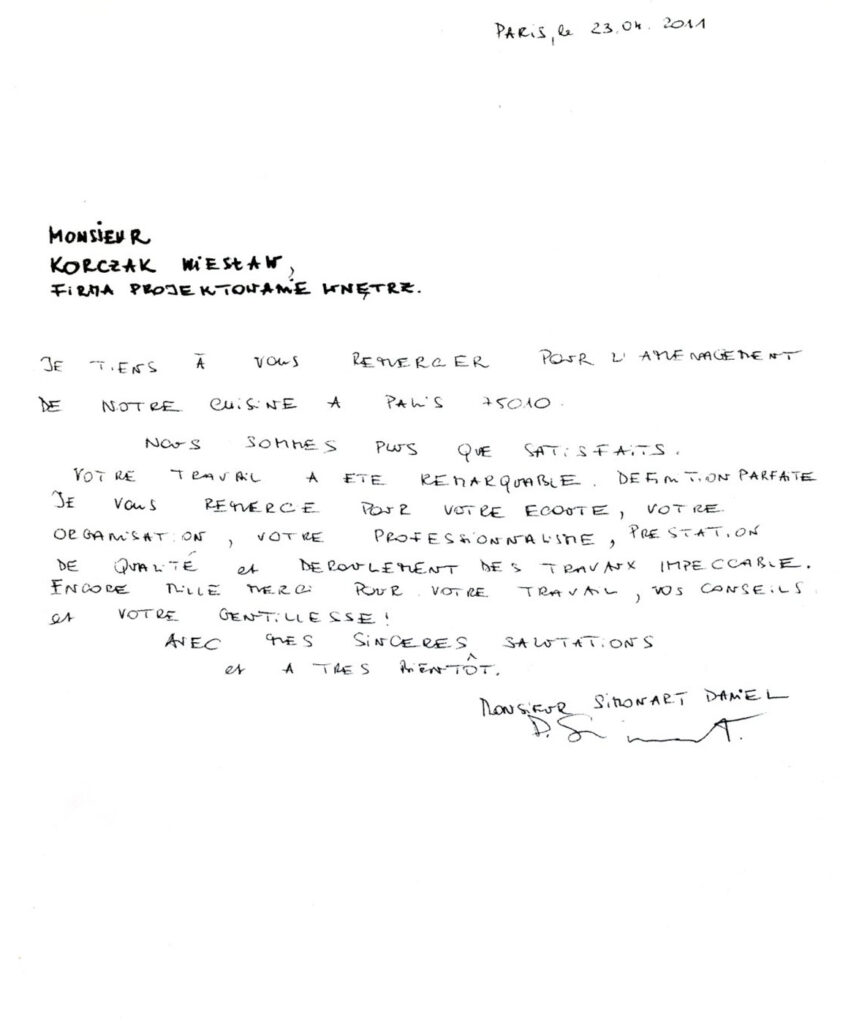 PARIS, le 23.04.2011
MONSIEUR
KORCZAK WIESŁAW,
FIRMA PROJEKTOWANIE WNĘTRZ.
JE TIENS À VOUS REMERCIER POUR L'AMENAGEMENT
DE NOTRE CUISINE A PARIS 75010.
NOUS SOMMES PLUS QUE SATISFAITS.
VOTRE TRAVAIL A ETE REMARQUABLE. DEFINITION PARFAITE
JE VOUS REMERCIE POUR VOTRE ECOUTE, VOTRE
ORGANISATION, VOTRE PROFESSIONNALISME, PRESTATION
DE QUALITÉ et DEROULEMENT DES TRAVAUX IMPECCABLE.
ENCORE MILLE MERCI POUR VOTRE TRAVAIL, VOS CONSEILS
et VOTRE GENTILLESSE!
AVEC MES SINCERES SALUTATIONS
et A TRES BIENTÔT.
MONSIEUR SIMONART DANIEL
D. Simonart.